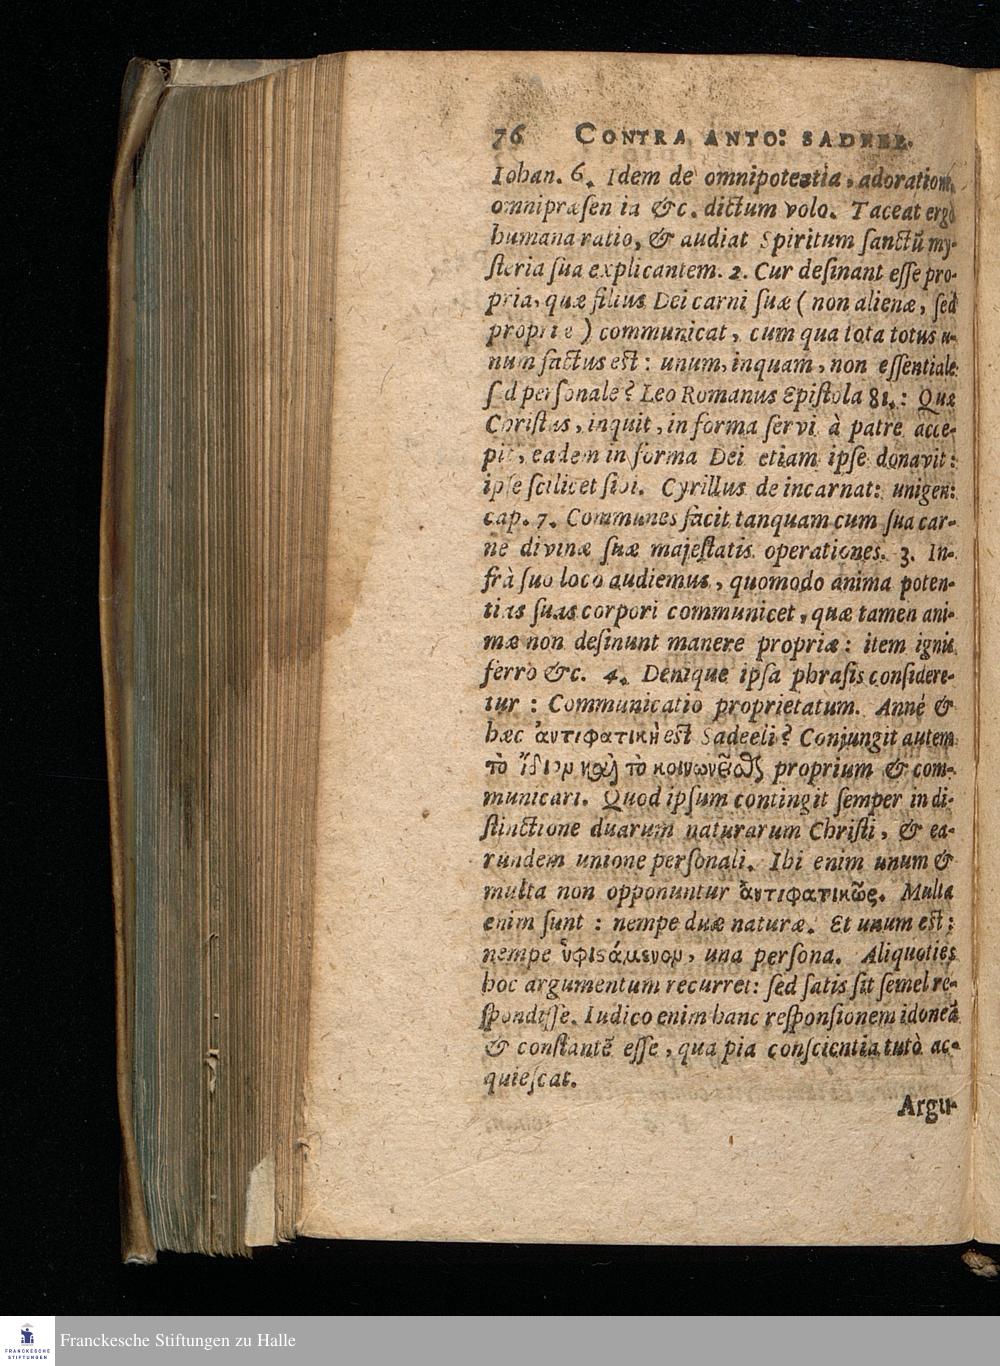 76 CONTRA ANTO: SADEEL.
Iohan. 6. Idem de omnipotentia, adoration,
omnipræsen ia &c. dictum volo. Taceat ergo
humana ratio, & audiat Spiritum sanctũ my-
steria sua explicantem. 2. Cur desinant esse pro-
pria, quæ filius Dei carni suæ ( non alienæ, sed
propriæ ) communicat, cum qua tota totus u-
num factus est: unum, inquam, non essentiale
sed personale? Leo Romanus Epistola 81.: Quæ
Christus, inquit, in forma servi à patre acce-
pit, eadem in forma Dei etiam ipse donavit:
ipse scilicet sibi. Cyrillus de incarnat: unigen:
cap. 7. Communes facit tanquam cum sua car-
ne divinæ suæ majestatis operationes. 3. In-
frà suo loco audiemus, quomodo anima poten-
tias suas corpori communicet, quæ tamen ani-
mæ non desinunt manere propriæ: item ignis
ferro &c. 4. Denique ipsa phrasis considere-
tur : Communicatio proprietatum. Anné &
hæc ἀντιφατικὴ est Sadeeli? Conjungit autem
τὸ ἴδιον καὶ τὸ κοινωνεῖσθαι proprium & com-
municari. Quod ipsum contingit semper in di-
stinctione duarum naturarum Christi, & ea-
rundem unione personali. Ibi enim unum &
multa non opponuntur ἀντιφατικῶς. Multa
enim sunt : nempe duæ naturæ. Et unum est:
nempe ὑφιστάμενον, una persona. Aliquoties
hoc argumentum recurret: sed satis sit semel re-
spondisse. Iudico enim hanc responsionem idoneã
& constantẽ esse, qua pia conscientia tutò ac-
quiescat.
Argu-
Franckesche Stiftungen zu Halle
FRANCKESCHE
STIFTUNGEN